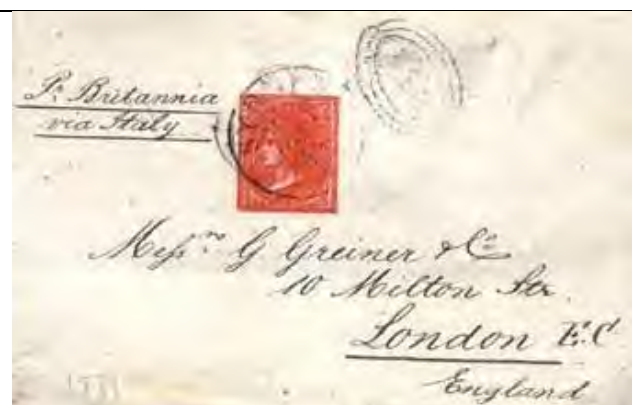 Pr. Britannia
via Italy
Messrs G Greiner & Co
10 Milton Str.
London E.C
England